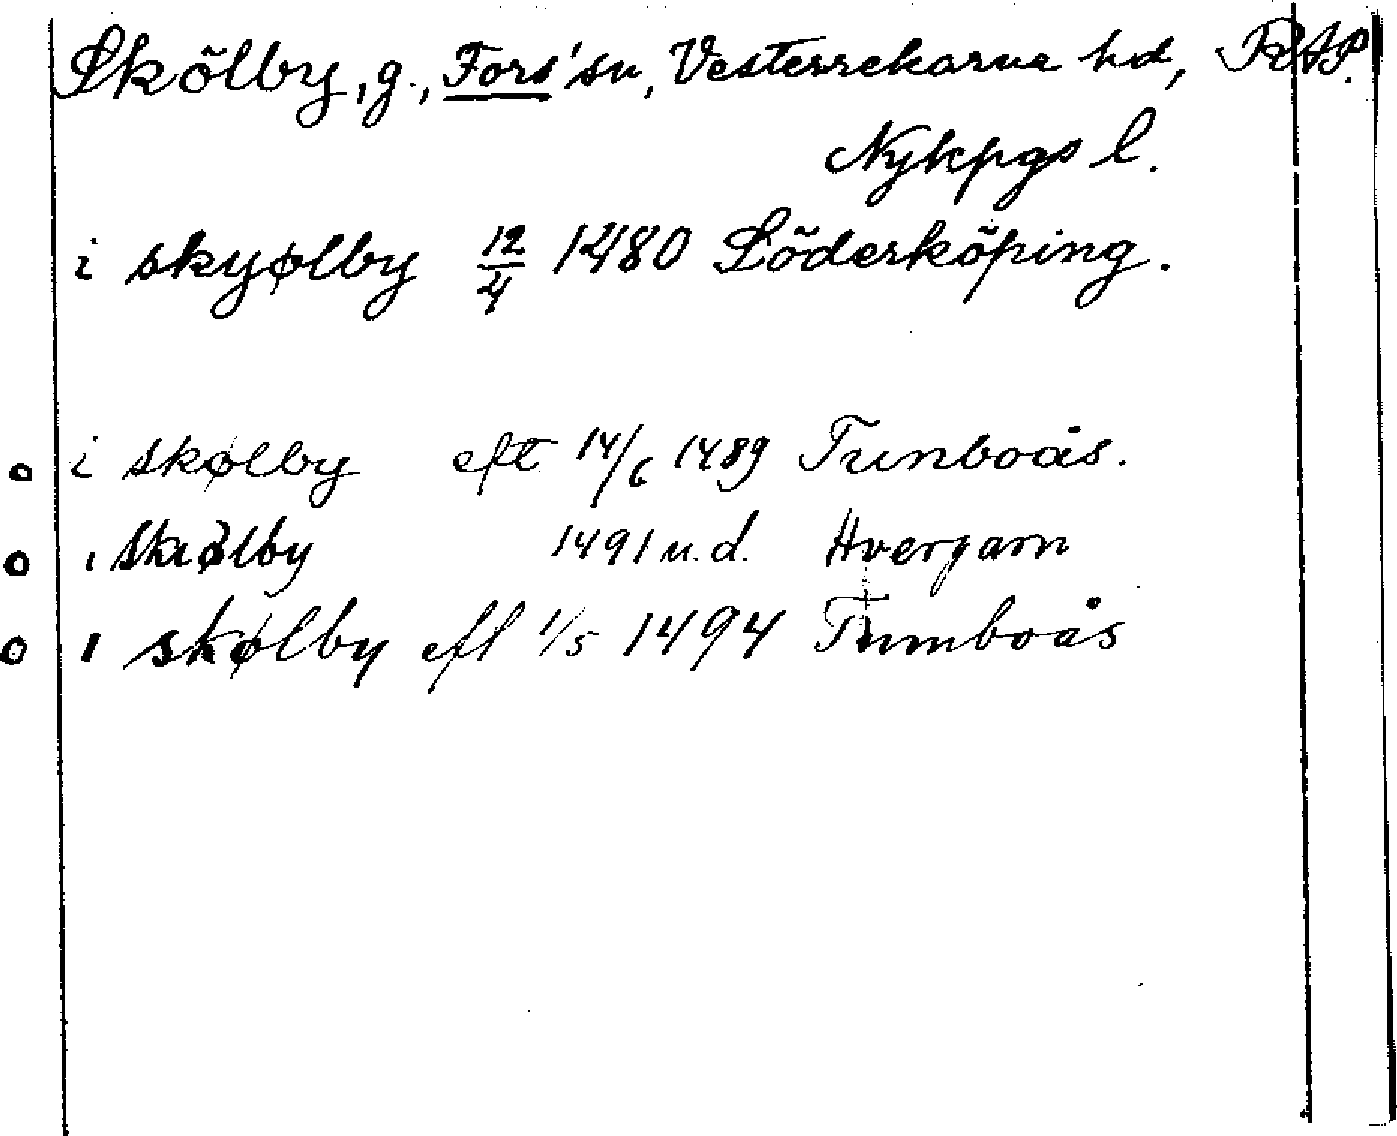 Skölby, g., Fors' sn, Vesterrekarne hd, RAP.
Nykpgs l.
i skyølby 12/4 1480 Söderköping.
o i skølby eft 14/6 1489 Tunboås.
o i skiølby 1491 u.d. Hvergarn
o i skølby eft 1/5 1494 Tumboås